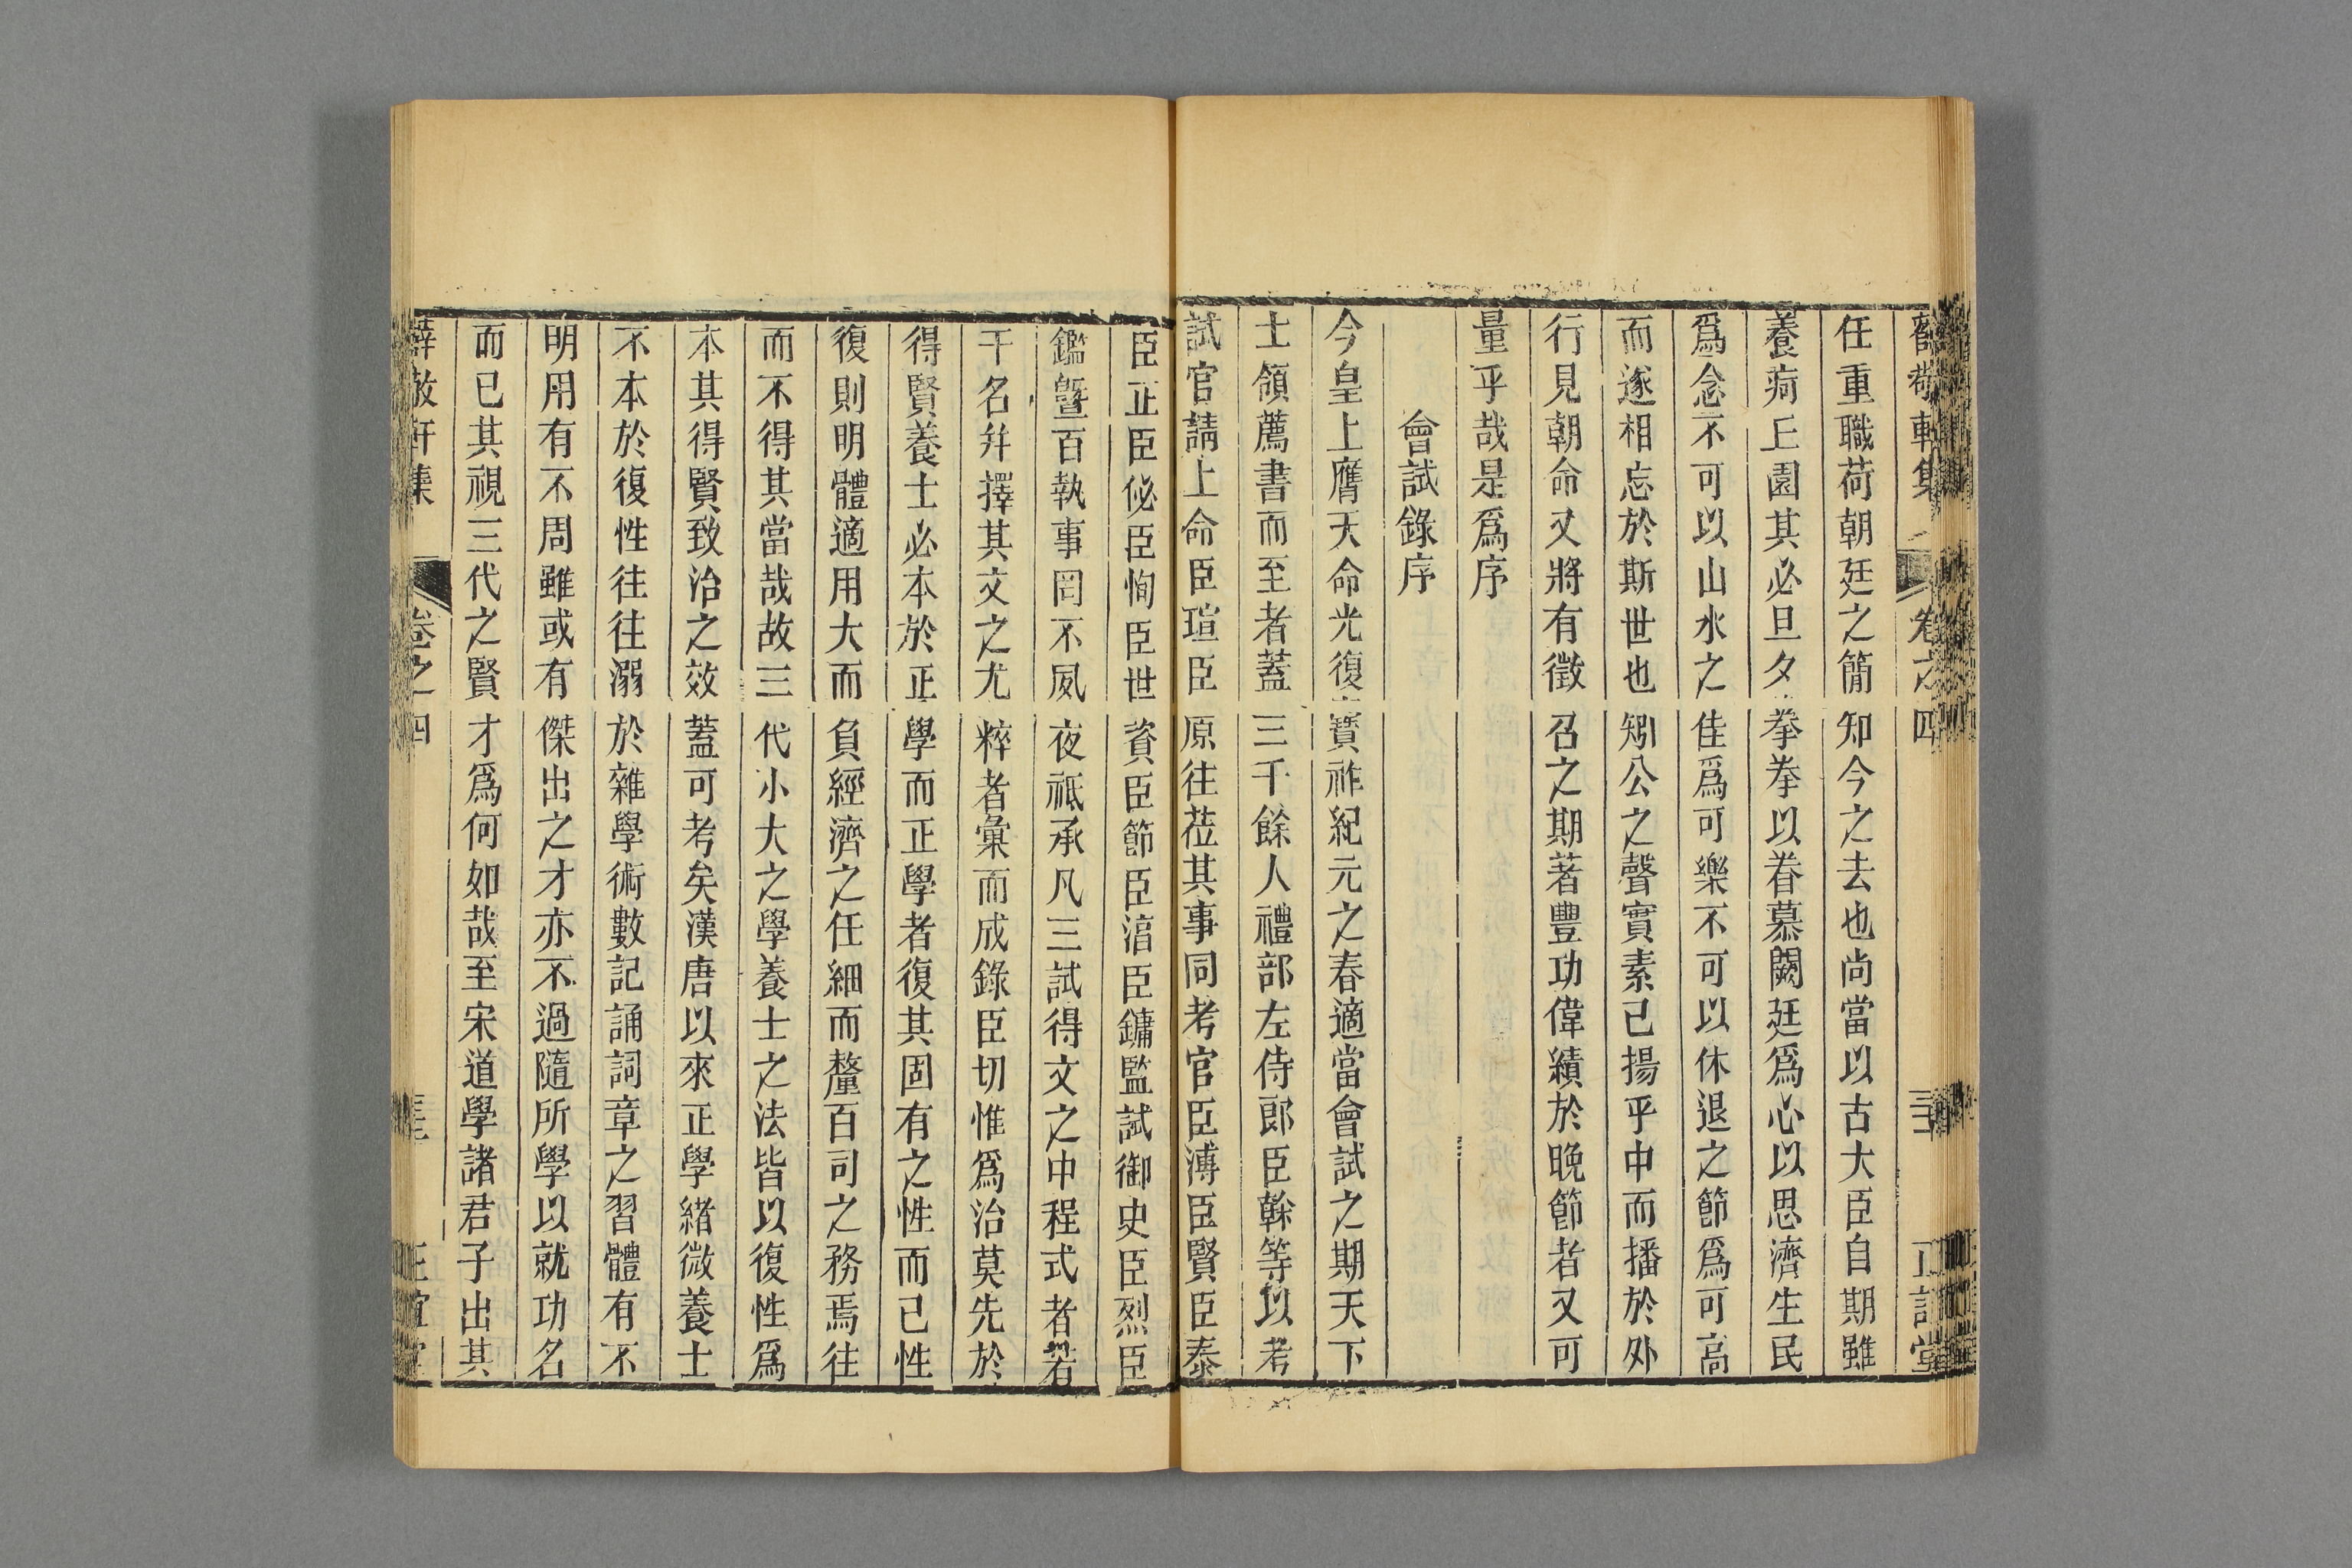 任重職荷朝廷之簡知今之去也尚當以古大臣自期雖
養痾丘園其必旦夕拳拳以眷慕闕廷爲心以思濟生民
爲念不可以山水之佳爲可樂不可以休退之節爲可高
而遂相忘於斯世也矧公之聲實素已揚乎中而播於外
行見朝命又將有徵召之期著豐功偉績於晚節者又可
量乎哉是爲序
會試錄序
今皇上膺天命光復寶祚紀元之春適當會試之期天下
士領薦書而至者蓋三千餘人禮部左侍郎臣榦等以考
試官請上命臣瑄臣原往莅其事同考官臣溥臣賢臣泰
臣正臣佖臣恂臣世資臣節臣淯臣鏞監試御史臣烈臣
鑑曁百執事罔不夙夜祗承凡三試得文之中程式者若
干名幷擇其文之尤粹者彙而成錄臣切惟爲治莫先於
得賢養士必本於正學而正學者復其固有之性而已性
復則明體適用大而負經濟之任細而釐百司之務焉往
而不得其當哉故三代小大之學養士之法皆以復性爲
本其得賢致治之效蓋可考矣漢唐以來正學緒微養士
不本於復性往往溺於雜學術數記誦詞章之習體有不
明用有不周雖或有傑出之才亦不過隨所學以就功名
而已其視三代之賢才爲何如哉至宋道學諸君子出其
薛敬軒集 卷之四 正誼堂